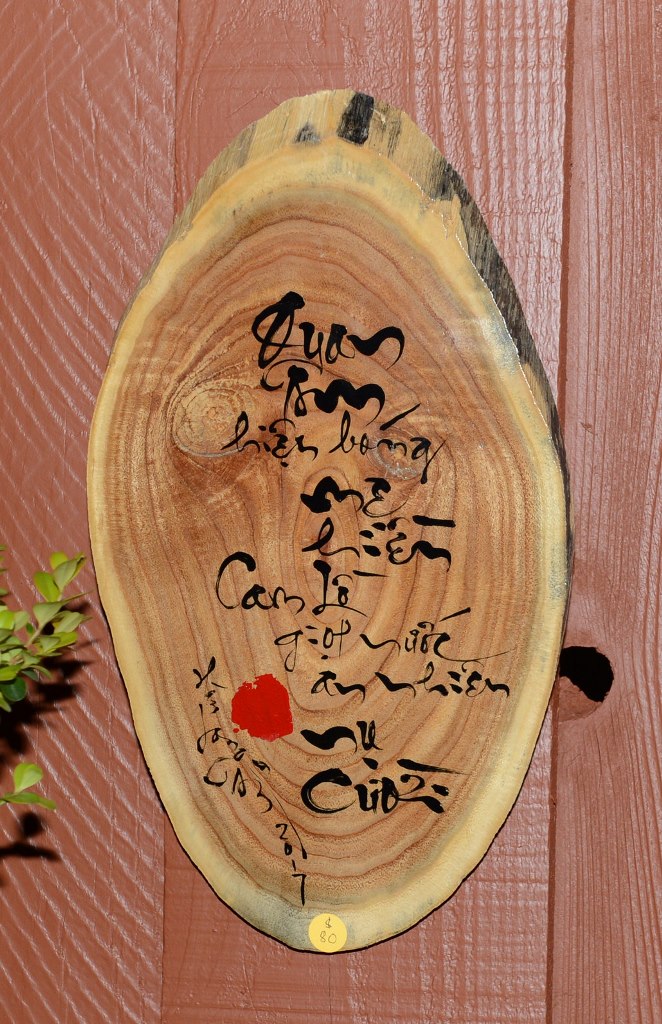 Quan
Tâm
hiện bóng
mẹ
hiền
Cam Lồ
giọt nước
an nhiên
nụ
Cười
2017
$
80